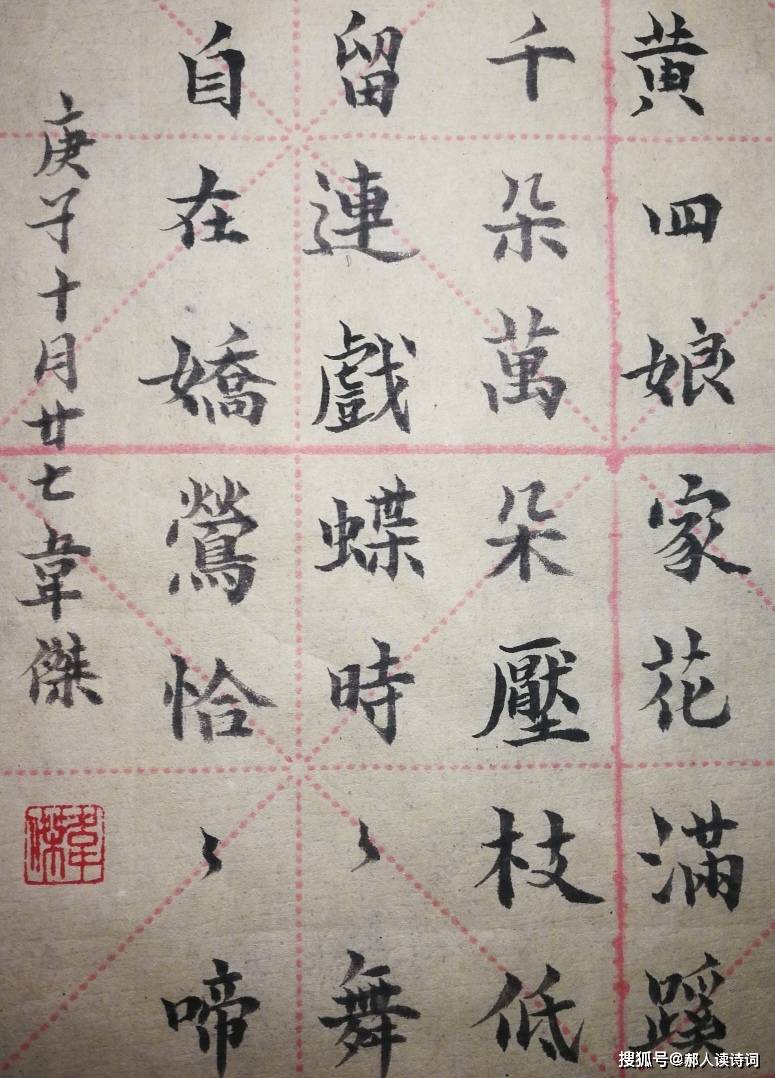 黄四娘家花滿蹊
千朵萬朵壓枝低
留連戲蝶時〻舞
自在嬌鶯恰〻啼
庚子十月廿七韋傑
韋傑
搜狐号@郝人读诗词